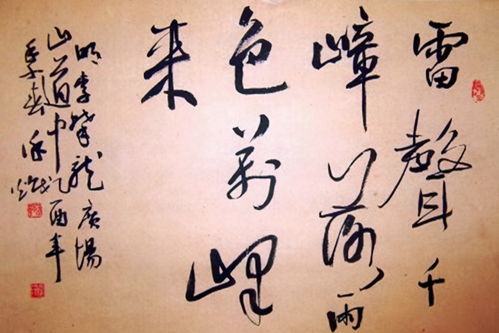 雷聲千
嶂落雨
色萬峰
来
明李攀龍廣陽
山道中乙酉年
季春